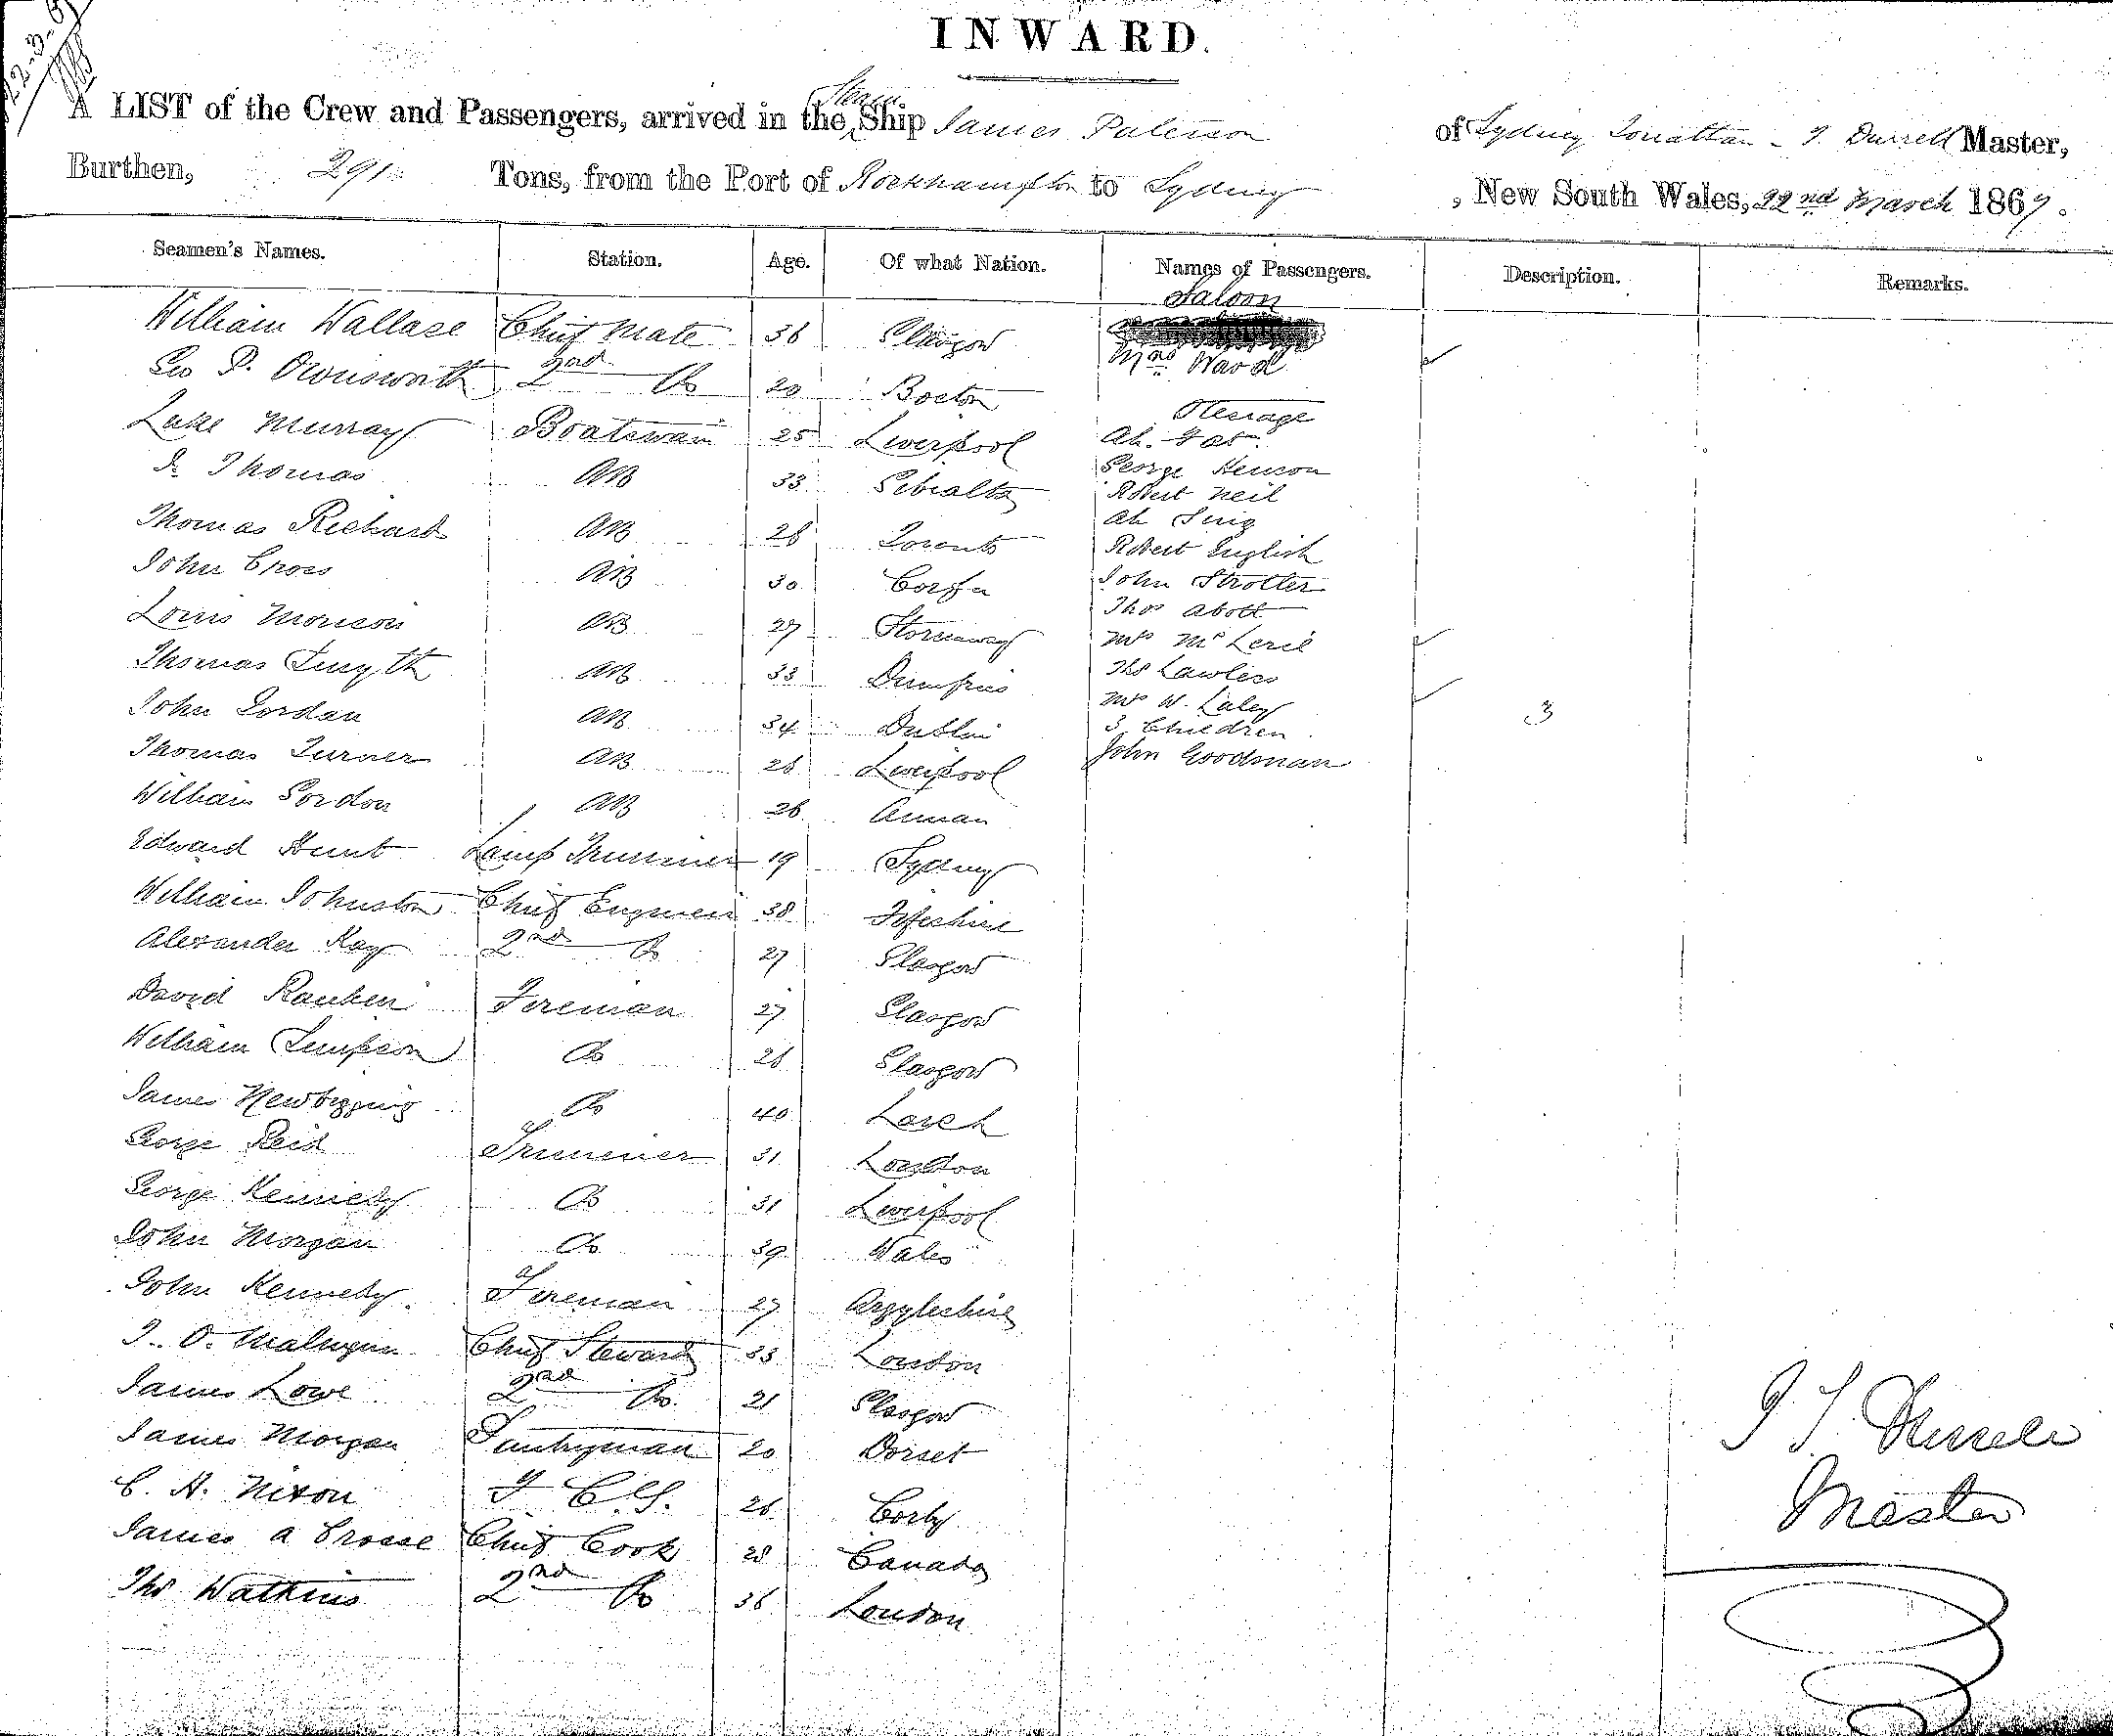 22-3-67
INWARD.
A LIST of the Crew and Passengers, arrived in the Steam Ship James Paterson of Sydney Jonathan - T Durrell Master,
Burthen, 291 Tons, from the Port of Rockhampton to Sydney, New South Wales, 22nd March 1867.
Seamen's Names. Station. Age. Of what Nation. Names of Passengers. Description. Remarks.
Saloon
William Wallase Chief Mate 36 Glasgow
Mrs Ward
Geo P. 2nd Do 20 Boston
Steerage
Luke Murray Boatswain 25 Liverpool Ah.
George Henson
J. Thomas AB 33 Gibralta Robert Neil
Ah Sing
Thomas Richard AB 28 Toronto Robert English
John Cross AB 30 Corfu John Strotter
Thos Abott
Louis Morison AB 27 Stornaway Mrs
Thomas Smyth AB 33 Dumfries Thos Lawless
Mrs W. Laley
John Jordan AB 34 Dublin 3 Children 3
Thomas Turner AB 28 Liverpool John Goodman
William Gordon AB 26 Annan
Edward Hunt Lamp Trimmer 19 Sydney
William Johnston Chief Engineer 38 Fifeshire
Alexander Kay 2nd Do 27 Glasgow
David Fireman 27 Glasgow
William Simpson Do 28 Glasgow
James Newbigging Do 40
George Reid Trimmer 31 London
George Kennedy Do 31 Liverpool
John Morgan Do 39 Wales
John Kennedy Fireman 27 Argyleshire
J. O. Chief Steward 33 London
James Lowe 2nd Do. 21 Glasgow
James Morgan Pantryman 20 Dorset
C. H. Nixon 26 Corby
James a Crosse Chief Cook 28 Canada
Thos Watkins 2nd Do 36 London
J T. Durrell
Master